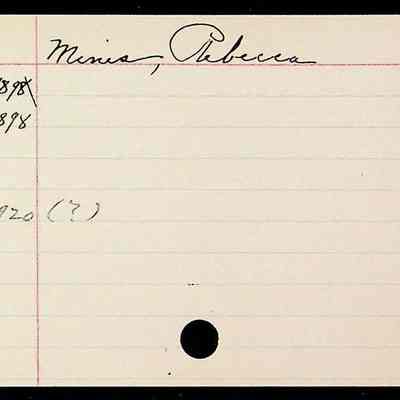 Minis, Rebecca
898
898
920 (?)